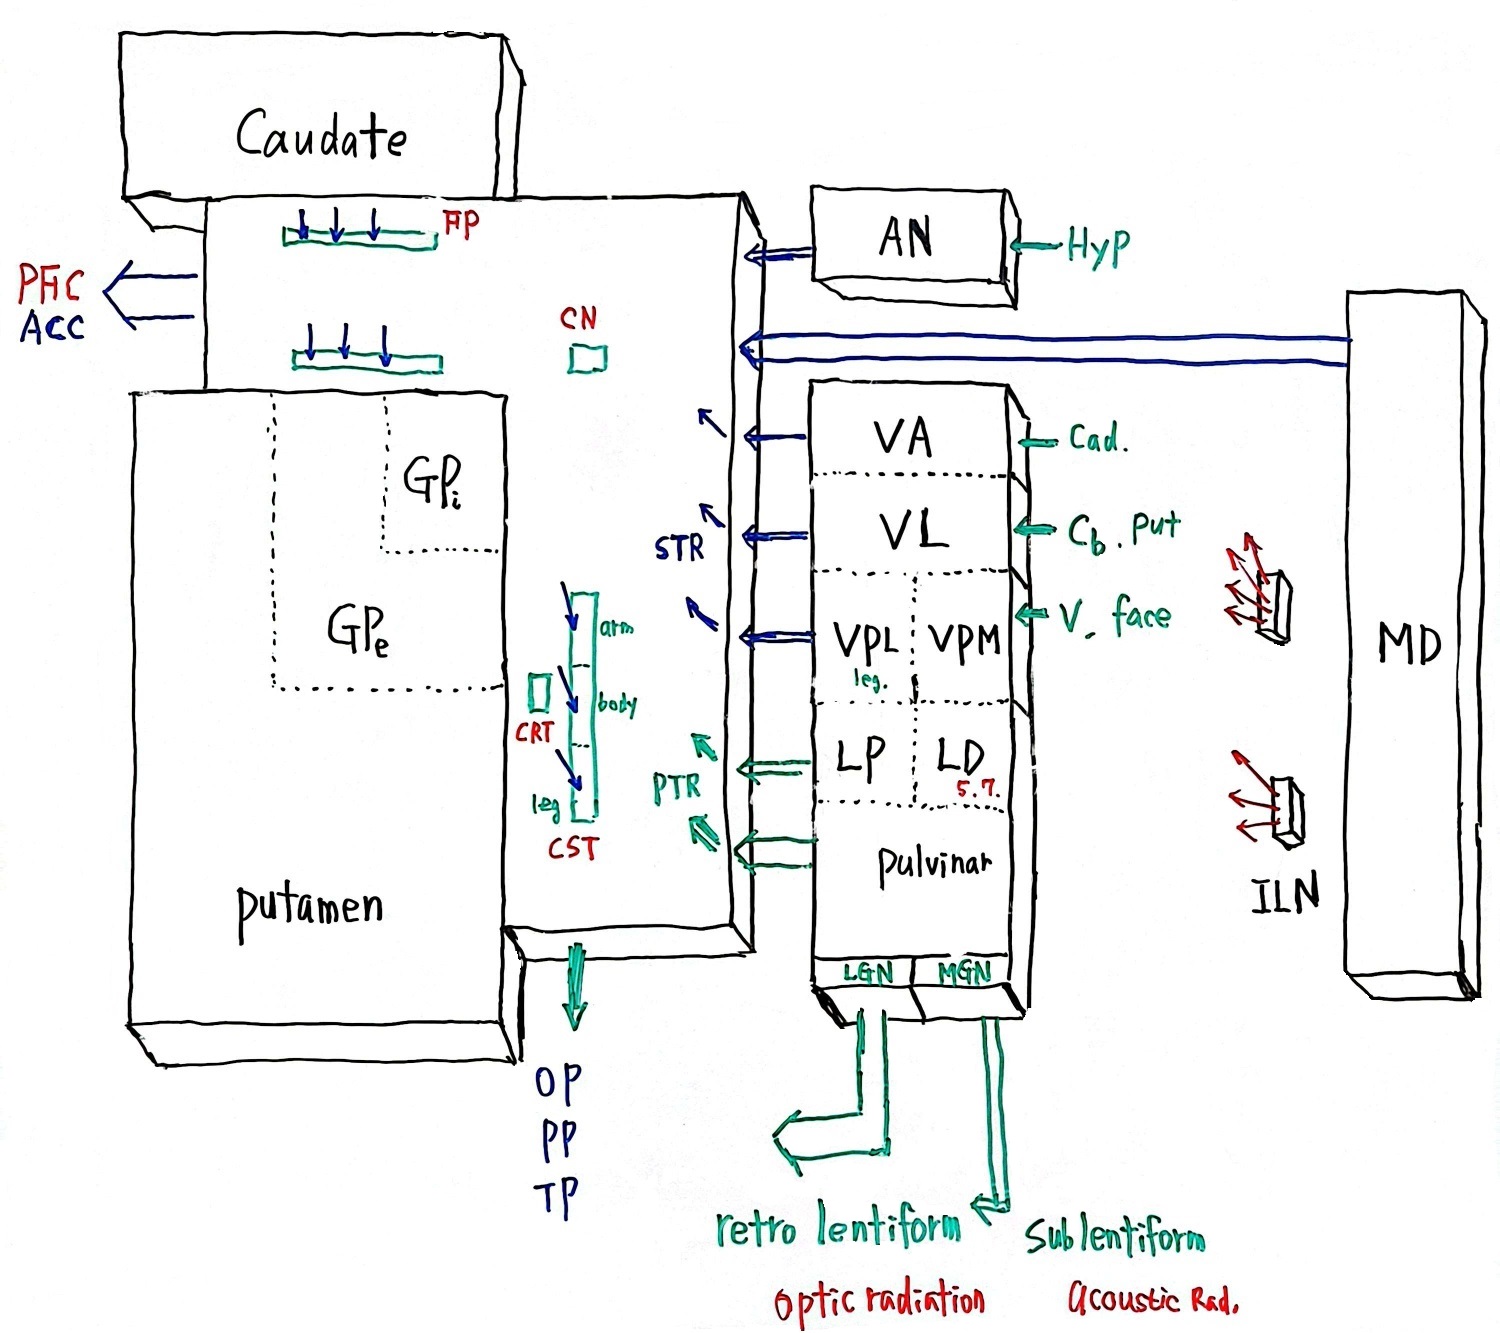 Caudate
FP
PFC
ACC
CN
AN
Hyp
GPi
GPe
putamen
STR
arm
body
leg
CRT
CST
PTR
OP
PP
TP
VA
Cad.
VL
Cb. Put
VPL
leg.
VPM
V. face
LP
LD
5.7.
pulvinar
LGN
MGN
ILN
MD
retro lentiform
Optic radiation
Sublentiform
Acoustic Rad.